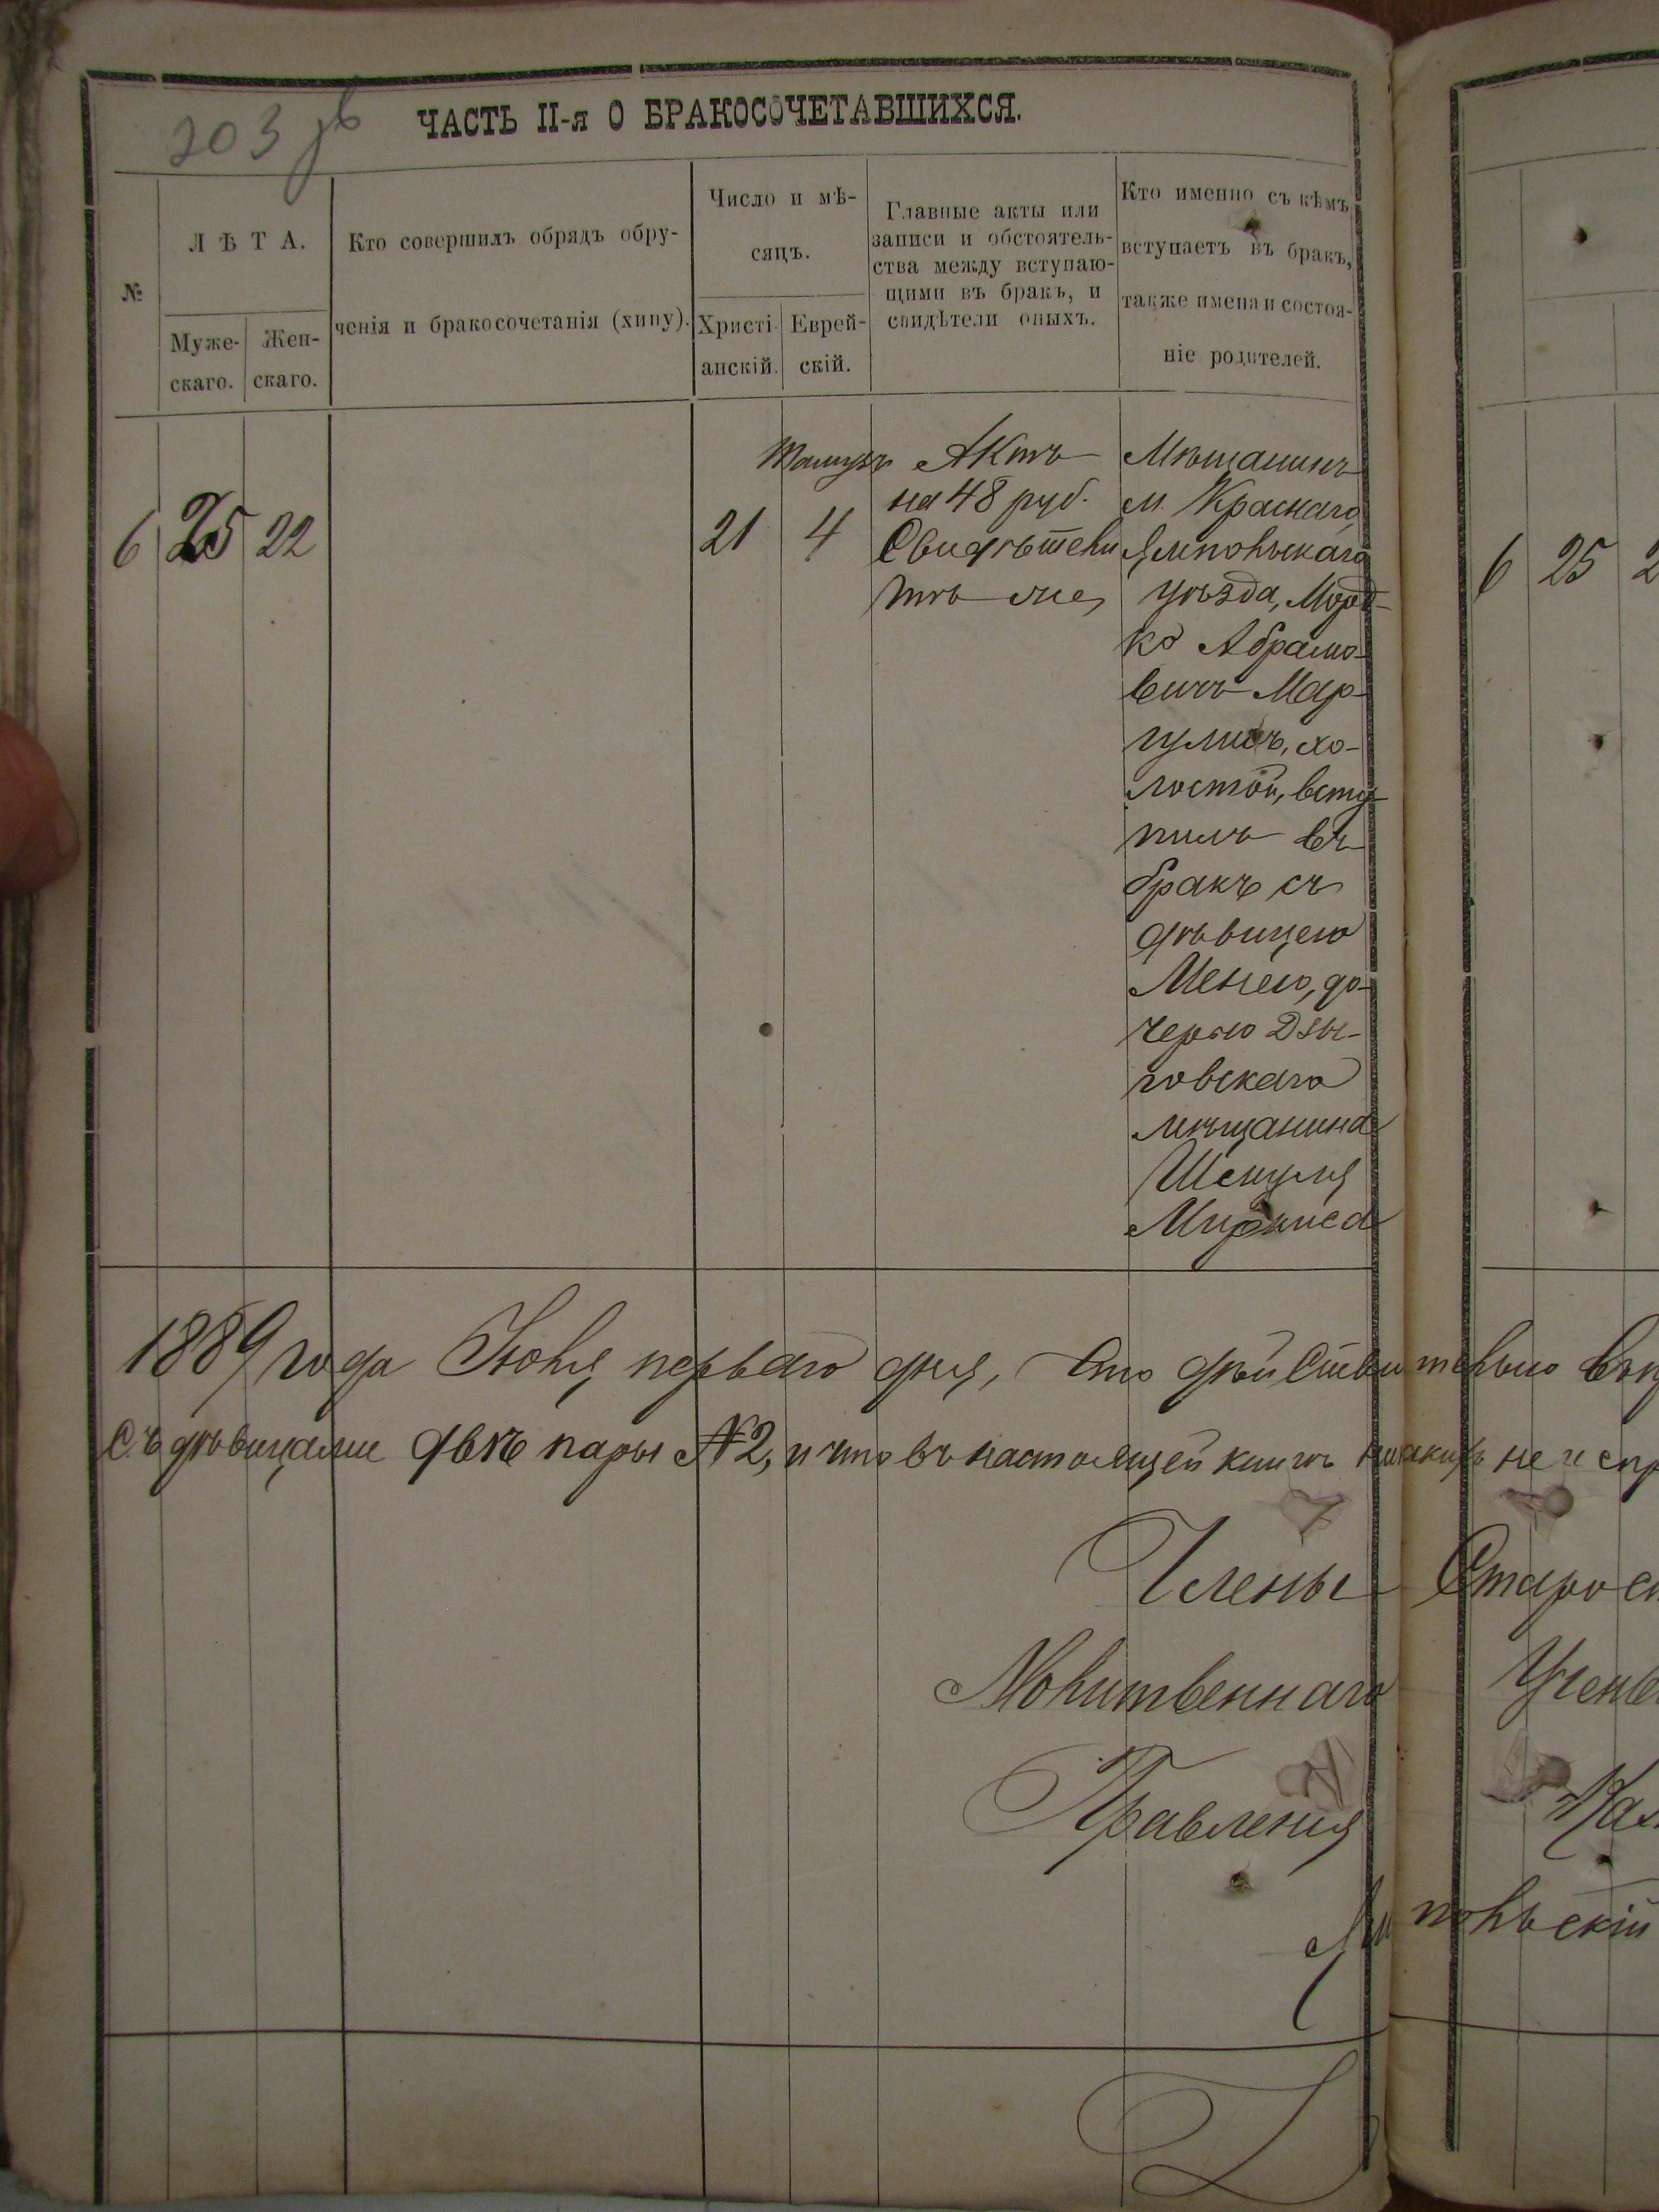 203 об
ЧАСТЬ II-я О БРАКОСОЧЕТАВШИХСЯ.
№
ЛѢТА.
Муже-
скаго.
Жен-
скаго.
Кто совершилъ обрядъ обру-
ченія и бракосочетанія (хипу).
Число и мѣ-
сяцъ.
Христі-
анскій.
Еврей-
скій.
Главные акты или
записи и обстоятель-
ства между вступаю-
щими въ бракъ, и
свидѣтели оныхъ.
Кто именно съ кѣмъ
вступаетъ въ бракъ,
также имена и состоя-
ніе родителей.
6 25 22
21
Тамузъ
4
Актъ
на 48 руб.
Свидѣтели
тѣ же,
Мѣщанинъ
м. Краснаго
Ямпольскаго
уѣзда, Морд-
ко Абрамо-
вичъ Мар-
гулисъ, хо-
лостой, всту-
пилъ въ
бракъ съ
дѣвицею
Менею, до-
черью Дзы-
говскаго
мѣщанина
Шемуля
6 25 2
1889 года Іюля перваго дня, что дѣйствительно
съ дѣвицами двѣ пары №2, и что въ настоящей книгѣ никакихъ не испр
Члены Старос
Молитвеннаго Учены
Правленія Каз
Ямпольскій